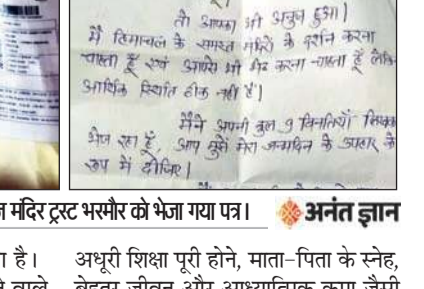 तो आपका भी अनुज हुआ।
मैं हिमाचल के समस्त मंदिरों के दर्शन करना
चाहता हूँ एवं आपसे भी भेंट करना चाहता हूँ लेकि
आर्थिक स्थिति ठीक नहीं है।
मैंने अपनी कुल 9 विनतियाँ लिखक
भेज रहा हूँ, आप मुझे मेरा जन्मदिन के उपहार के
रूप में दीजिए।
मंदिर ट्रस्ट भरमौर को भेजा गया पत्र।
अनंत ज्ञान
है।
अधूरी शिक्षा पूरी होने, माता-पिता के स्नेह,
वाले
बेहतर जीवन और आध्यात्मिक कृपा जैसी